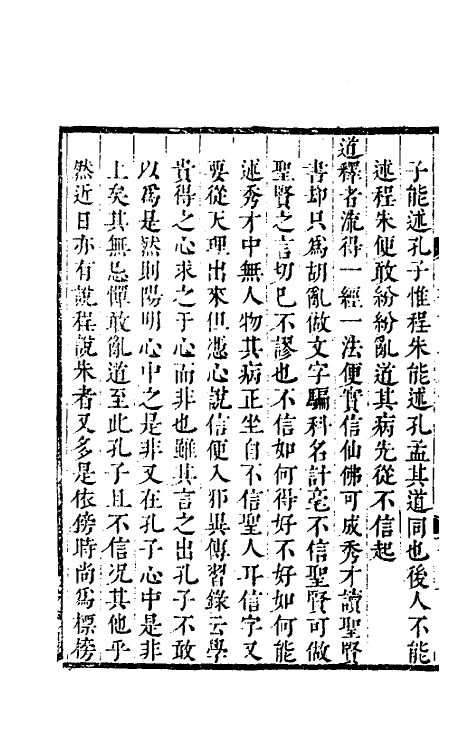 子能述孔子惟程朱能述孔孟其道同也後人不能
述程朱便敢紛紛亂道其病先從不信起
道釋者流得一經一法便實信仙佛可成秀才讀聖賢
書却只爲胡亂做文字騙科名計毫不信聖賢可做
聖賢之言切已不謬也不信如何得好不好如何能
述秀才中無人物其病正坐自不信聖人耳信字又
要從天理出來但憑心說信便入邪異傳習錄云學
貴得之心求之于心而非也雖其言之出孔子不敢
以爲是然則陽明心中之是非又在孔子心中是非
上矣其無忌憚敢亂道至此孔子且不信况其他乎
然近日亦有說程說朱者又多是依傍時尚爲標榜